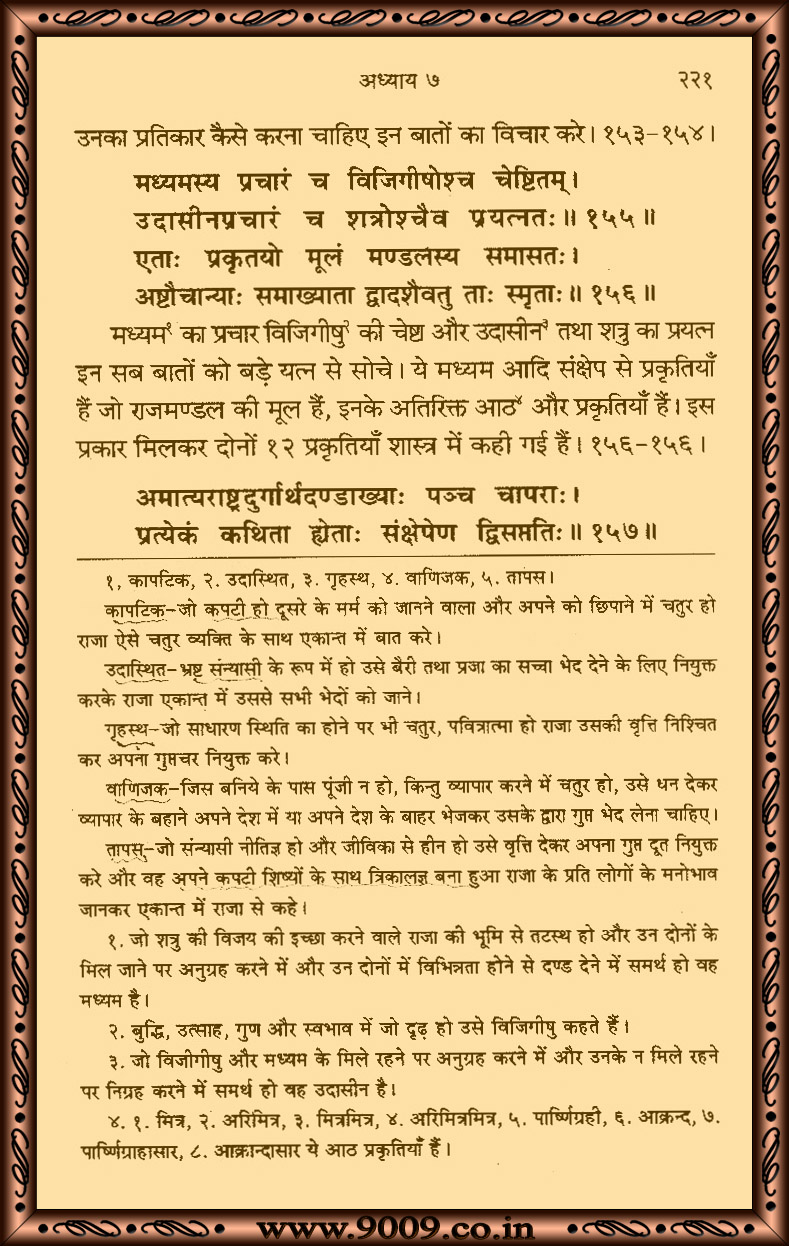 अध्याय ७ २२१
उनका प्रतिकार कैसे करना चाहिए इन बातों का विचार करे। १५३-१५४।
मध्यमस्य प्रचारं च विजिगीषोश्च चेष्टितम्।
उदासीनप्रचारं च शत्रोश्चैव प्रयत्नतः॥ १५५॥
एताः प्रकृतयो मूलं मण्डलस्य समासतः।
अष्टौचान्याः समाख्याता द्वादशैवतु ताः स्मृताः॥ १५६॥
मध्यम¹ का प्रचार विजिगीषु² की चेष्ट और उदासीन³ तथा शत्रु का प्रयत्न
इन सब बातों को बड़े यत्न से सोचे। ये मध्यम आदि संक्षेप से प्रकृतियाँ
हैं जो राजमण्डल की मूल हैं, इनके अतिरिक्त आठ⁴ और प्रकृतियाँ हैं। इस
प्रकार मिलकर दोनों १२ प्रकृतियाँ शास्त्र में कही गई हैं। १५६-१५६।
अमात्यराष्ट्रदुर्गार्थदण्डाख्याः पञ्च चापराः।
प्रत्येकं कथिता ह्येताः संक्षेपेण द्विसप्ततिः॥ १५७॥
१, कापटिक, २. उदास्थित, ३. गृहस्थ, ४. वाणिजक, ५. तापस।
कापटिक-जो कपटी हो दूसरे के मर्म को जानने वाला और अपने को छिपाने में चतुर हो
राजा ऐसे चतुर व्यक्ति के साथ एकान्त में बात करे।
उदास्थित-भ्रष्ट संन्यासी के रूप में हो उसे बैरी तथा प्रजा का सच्चा भेद देने के लिए नियुक्त
करके राजा एकान्त में उससे सभी भेदों को जाने।
गृहस्थ-जो साधारण स्थिति का होने पर भी चतुर, पवित्रात्मा हो राजा उसकी वृत्ति निश्चित
कर अपना गुप्तचर नियुक्त करे।
वाणिजक-जिस बनिये के पास पूंजी न हो, किन्तु व्यापार करने में चतुर हो, उसे धन देकर
व्यापार के बहाने अपने देश में या अपने देश के बाहर भेजकर उसके द्वारा गुप्त भेद लेना चाहिए।
तापस्-जो संन्यासी नीतिज्ञ हो और जीविका से हीन हो उसे वृत्ति देकर अपना गुप्त दूत नियुक्त
करे और वह अपने कपटी शिष्यों के साथ त्रिकालज्ञ बना हुआ राजा के प्रति लोगों के मनोभाव
जानकर एकान्त में राजा से कहे।
१. जो शत्रु की विजय की इच्छा करने वाले राजा की भूमि से तटस्थ हो और उन दोनों के
मिल जाने पर अनुग्रह करने में और उन दोनों में विभिन्नता होने से दण्ड देने में समर्थ हो वह
मध्यम है।
२. बुद्धि, उत्साह, गुण और स्वभाव में जो दृढ़ हो उसे विजिगीषु कहते हैं।
३. जो विजीगीषु और मध्यम के मिले रहने पर अनुग्रह करने में और उनके न मिले रहने
पर निग्रह करने में समर्थ हो वह उदासीन है।
४. १. मित्र, २. अरिमित्र, ३. मित्रमित्र, ४. अरिमित्रमित्र, ५. पार्ष्णिग्रही, ६. आक्रन्द, ७.
पार्ष्णिग्राहासार, ८. आक्रान्दासार ये आठ प्रकृतियाँ हैं।
www.9009.co.in